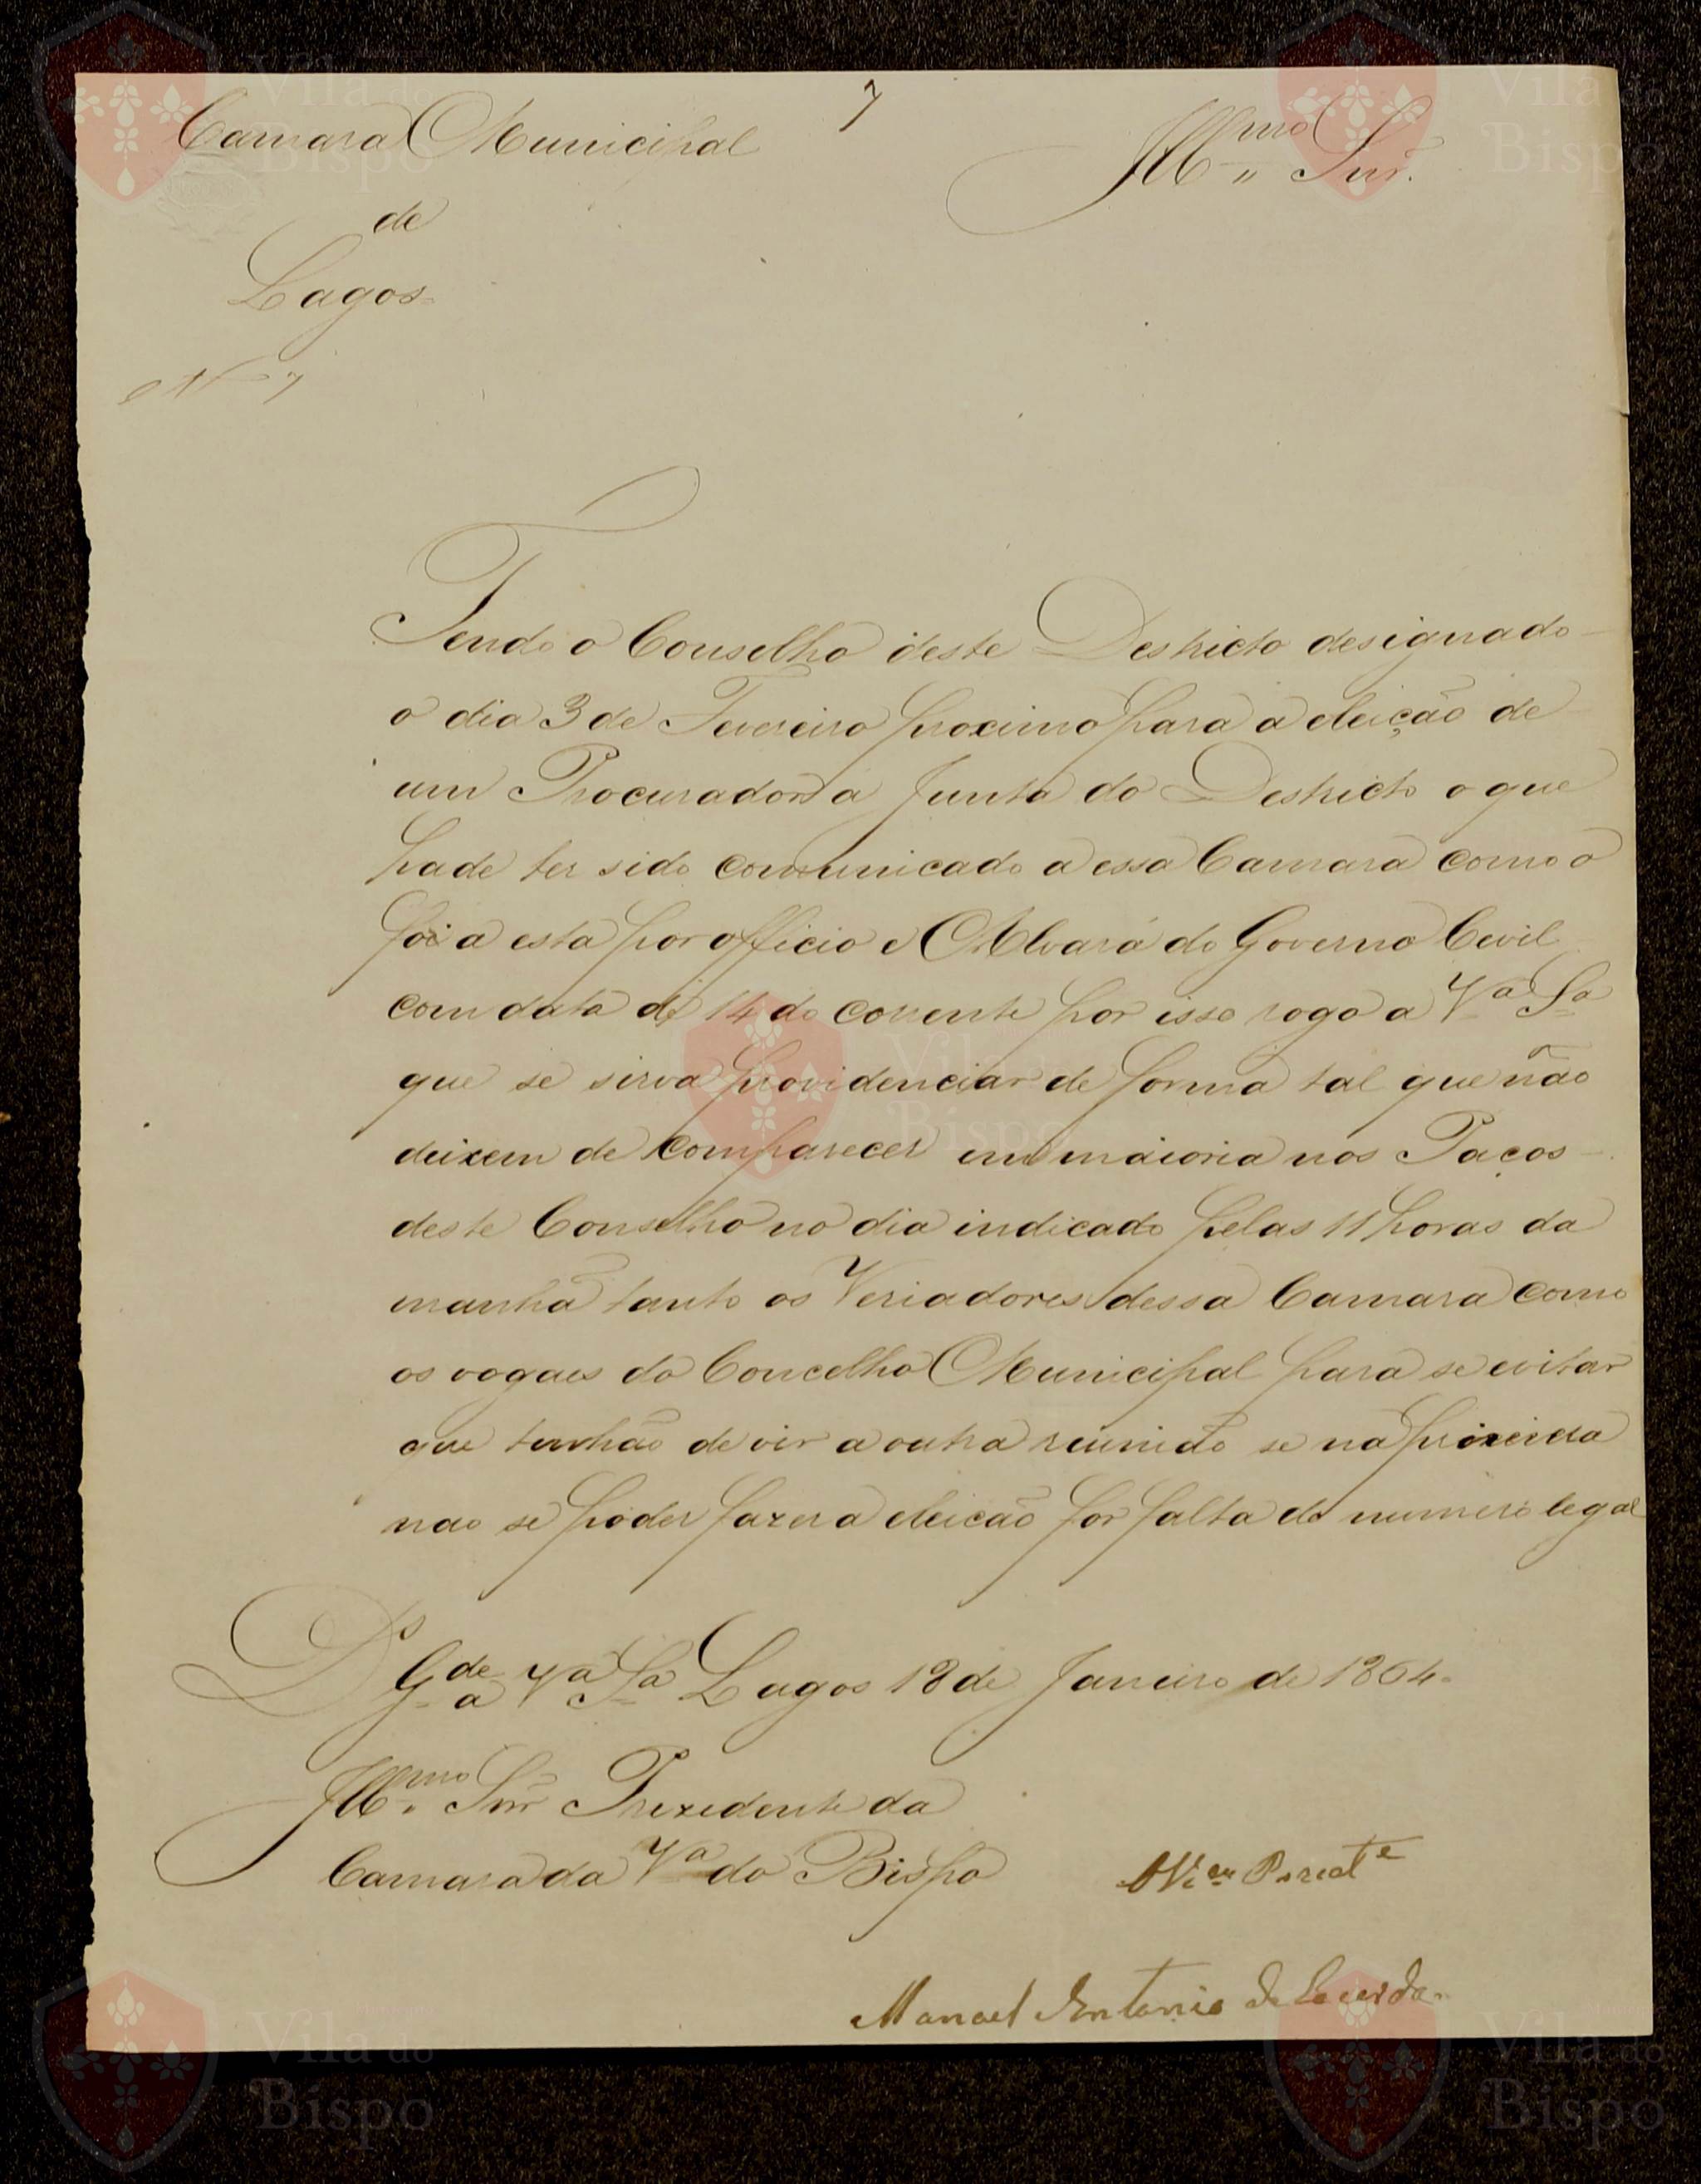 7
Camara Municipal
de
Lagos
N 7
Illmo Snr.
Tendo o Conselho deste Destricto designado
o dia 3 de Fevereiro proximo para a eleição de
um Procurador a Junta do Destricto o que
hade ter sido comunicado a essa Camara como o
foi a esta por officio e Alvará do Governo Cevil
com data de 14 do corrente por isso rogo a Va Sa
que se sirva providenciar de forma tal que não
deixem de comparecer em maioria nos Paços
deste Conselho no dia indicado pelas 11 horas da
manhã tanto os Veriadores dessa Camara como
os vogaes do Concelho Municipal para se evitar
que tenhão de vir a outra reunião se na primeira
nao se poder fazer a eleicão por falta de numero legal
Ds Gde a Va Sa Lagos 18 de Janeiro de 1864
Illmo Snr Prezidente da
Camara da Va do Bispo
O Vice Presidte
Manoel Antonio de Lacerda
Vila do Bispo
Vila do Bispo
Vila do Bispo
Vila do Bispo
Vila do Bispo